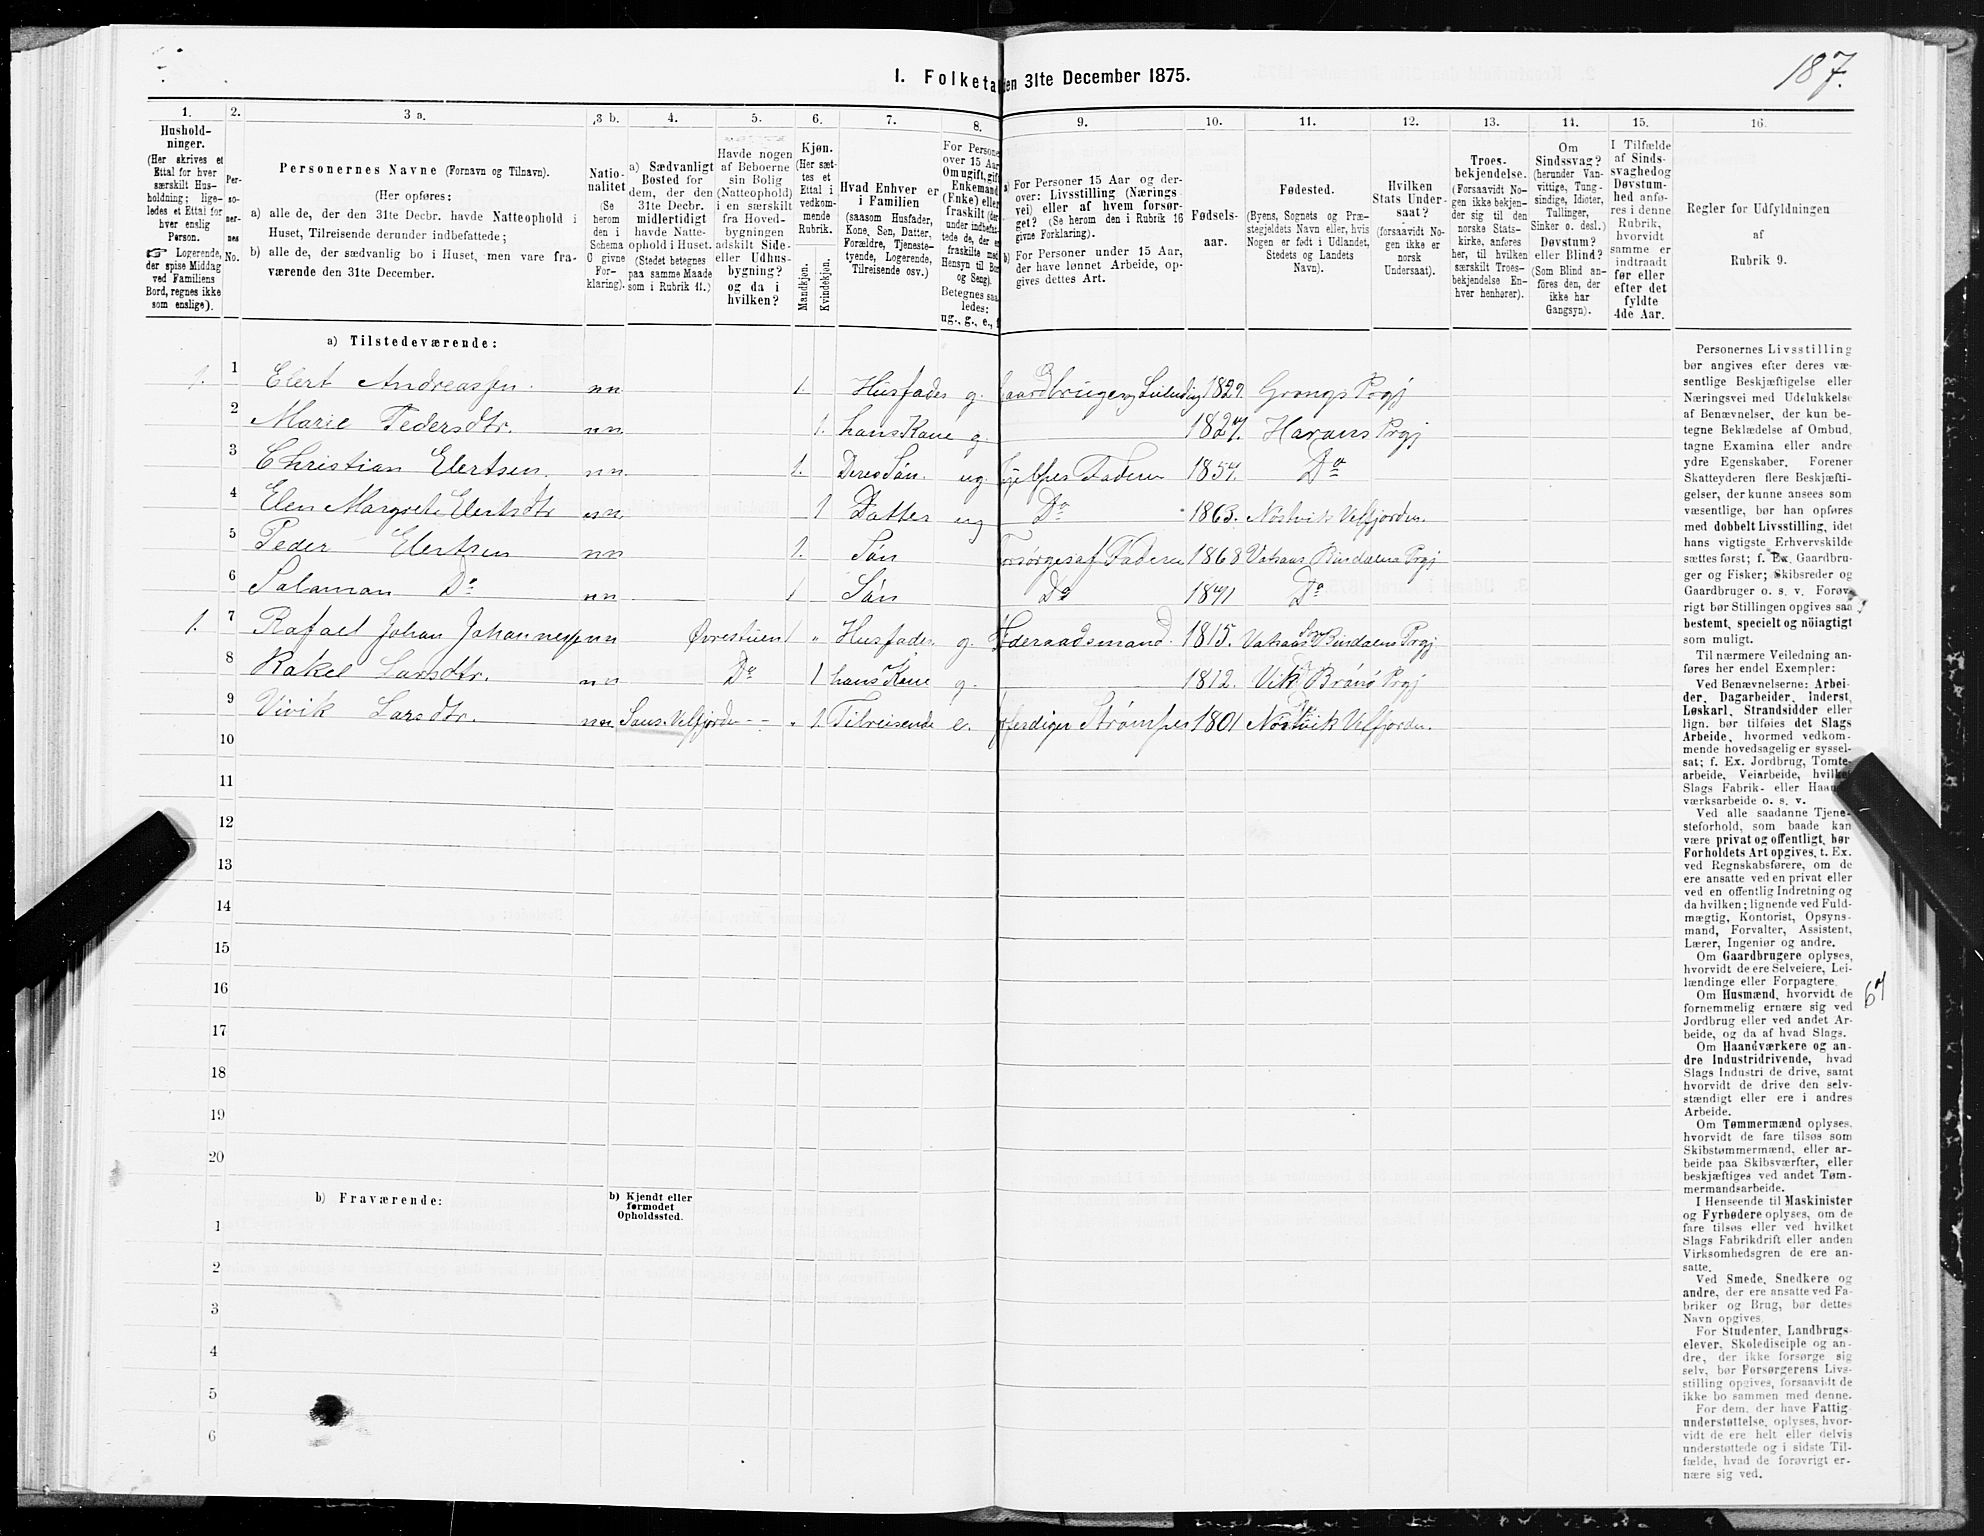 187.
1. Folketa
den 31te December 1875.
1.
2.
3 a.
3 b.
4.
5.
6.
7.
8.
9.
10.
11.
12.
13.
14.
15.
16.
Hushold-
ninger.
(Her skrives et
Ettal for hver
særskilt Hus-
holdning; lige-
ledes et Ettal for
hver enslig
Person.
☞ Logerende,
der spise Middag
ved Familiens
Bord, regnes ikke
som enslige).
Per-
so-
ner-
nes
No.
Personernes Navne (Fornavn og Tilnavn).
(Her opføres:
a) alle de, der den 31te Decbr. havde Natteophold i
Huset, Tilreisende derunder indbefattede;
b) alle de, der sædvanlig bo i Huset, men vare fra-
værende den 31te December.
Natio-
nalitet
(Se
herom
den i
Schema
O givne
For-
klaring).
a) Sædvanligt
Bosted for
dem, der den
31te Decbr.
midlertidigt
havde Natte-
ophold i Huset.
(Stedet betegnes
paa samme Maade
som i Rubrik 11.)
Havde nogen
af Beboerne
sin Bolig
(Natteophold)
i en særskilt
fra Hoved-
bygningen
adskilt Side-
eller Udhus-
bygning?
og da i
hvilken?
Kjøn.
(Her sæt-
tes et
Ettal i
vedkom-
mende
Rubrik.
Mandkjøn.
Kvindekjøn.
Hvad Enhver er
i Familien
(saasom Husfader,
Kone, Søn, Datter,
Forældre, Tjeneste-
tyende, Logerende,
Tilreisende osv.)
For Persone
over 15 Aar
Om ugift, gift
Enkemand
(Enke) eller
fraskilt (der
under indbefat-
tede de, der er
fraskilte med
Hensyn til Bor
og Seng).
Betegnes saa
ledes:
ug., g., e., f
a) For Personer 15 Aar og der-
over: Livsstilling (Nærings
vei) eller af hvem forsør-
get? (Se herom den i Rubrik 16
givne Forklaring).
b) For Personer under 15 Aar,
der have lønnet Arbeide, op-
gives dettes Art.
Fødsels-
aar.
Fødested.
(Byens, Sognets og Præ-
stegjeldets Navn eller, hvis
Nogen er født i Udlandet,
Stedets og Landets
Navn).
Hvilken
Stats Under-
saat?
(forsaavidt No-
gen ikke er
norsk
Undersaat).
Troes-
bekjendelse.
(Forsaavidt No-
gen ikke bekjen-
der sig til den
norske Stats-
kirke, anføres
her, til hvilken
særskilt Troes-
bekjendelse En-
hver henhører).
Om
Sindssvag?
(herunder Van-
vittige, Tung-
sindige, Idioter,
Tullinger,
Sinker o. desl.)
Døvstum?
eller Blind?
(Som Blind an-
føres den, der
ikke har
Gangsyn).
I Tilfælde
af Sinds-
svaghed og
Døvstum-
hed anfø-
res i denne
Rubrik,
hvorvidt
samme er
indtraadt
før eller
efter det
fyldte
4de Aar.
Regler for Udfyldningen
af
Rubrik 9.
a) Tilstedeværende:
1. 1 Elert Andreassen. nn 1. Husfader g. Gaardbruger og Leilending 1829. Grongs Prgj
2 Marie Pedersdtr. nn. 1. hans Kone g. 1827. Harans Prgj
3 Christian Elertsen. nn. 1. Deres Søn. ug. hjelper Faderen 1857. Do
4 Elen Margrete Elertsdtr nn. 1 Datter ug Do 1863. Nøstvik Velfjorden.
5 Peder Elertsen nn 1. Søn Forsørges af Faderen 1868 Vasaas Bindalens Prgj
6 Salamon Do nn 1 Søn Do 1871 Do
1. 7 Rafael Johan Johannessen nn Øvrestuen 1 „ Husfader. g. Føderaadsmand. 1815. Vasaas Bindalens Prgj
8 Rakel Larsdtr. nn Do 1 hans Kone g. 1812. Vik Brønø Prgj
9 Vivik Larsdtr. nn. Saus. Velfjorden - - „ 1. Tilreisende e. forferdiger Strømper 1801 Nøstvik Velfjorden.
10
11
12
13
14
15
16
17
18
19
20
b) Fraværende:
b) Kjendt eller
formodet
Opholdssted.
1
2
3
4
5
6
Personernes Livsstilling
bør angives efter deres væ-
sentlige Beskjæftigelse eller
Næringsvei med Udelukkelse
af Benævnelser, der kun be-
tegne Beklædelse af Ombud,
tagne Examina eller andre
ydre Egenskaber. Forener
Skatteyderen flere Beskjæfti-
gelser, der kunne ansees som
væsentlige, bør han opføres
med dobbelt Livsstilling, idet
hans vigtigste Erhvervskilde
sættes først; f. Ex. Gaardbru-
ger og Fisker; Skibsreder og
Gaardbruger o. s. v. Forøv-
rigt bør Stillingen opgives saa
bestemt, specielt og nöiagtigt
som muligt.
Til nærmere Veiledning an-
føres her endel Exempler:
Ved Benævnelserne: Arbei-
der, Dagarbeider, Inderst,
Løskarl, Strandsidder eller
lign. bør tilføies det Slags
Arbeide, hvormed vedkom-
mende hovedsagelig er syssel-
sat; f. Ex. Jordbrug, Tomte-
arbeide, Veiarbeide, hvilket
Slags Fabrik- eller Haand-
værksarbeide o. s. v.
Ved alle saadanne Tjene-
steforhold, som baade kan
være privat og offentligt, bør
Forholdets Art opgives, t. Ex.
ved Regnskabsførere, om de
ere ansatte ved en privat eller
ved en offentlig Indretning og
da hvilken; lignende ved Fuld-
mægtig, Kontorist, Opsyns-
mand, Forvalter, Assistent,
Lærer, Ingeniør og andre.
Om Gaardbrugere oplyses,
hvorvidt de ere Selveiere, Lei-
lændinge eller Forpagtere.
67
Om Husmænd, hvorvidt de
fornemmelig ernære sig ved
Jordbrug eller ved andet Ar-
beide, og da af hvad Slags.
Om Haandværkere og an-
dre Industridrivende, hvad
Slags Industri de drive, samt
hvorvidt de drive den selv-
stændigt eller ere i andres
Arbeide.
Om Tømmermænd oplyses,
hvorvidt de fare tilsøs som
Skibstømmermænd, eller ar-
beide paa Skibsværfter, eller
beskjæftiges ved andet Tøm-
mermandsarbeide.
I Henseende til Maskinister
og Fyrbødere oplyses, om de
fare tilsøs eller ved hvilket
Slags Fabrikdrift eller anden
Virksomhedsgren de ere an-
satte.
Ved Smede, Snedkere og
andre, der ere ansatte ved Fa-
briker og Brug, bør dettes
Navn opgives.
For Studenter, Landbrugs-
elever, Skoledisciple og an-
dre, der ikke forsørge sig
selv, bør Forsørgerens Livs-
stilling opgives, forsaavidt de
ikke bo sammen med denne.
For dem, der have Fattig-
understøttelse, oplyses, hvor-
vidt de ere helt eller delvis
understøttede og i sidste Til-
fælde, hvad de forøvrigt er-
nære sig ved.